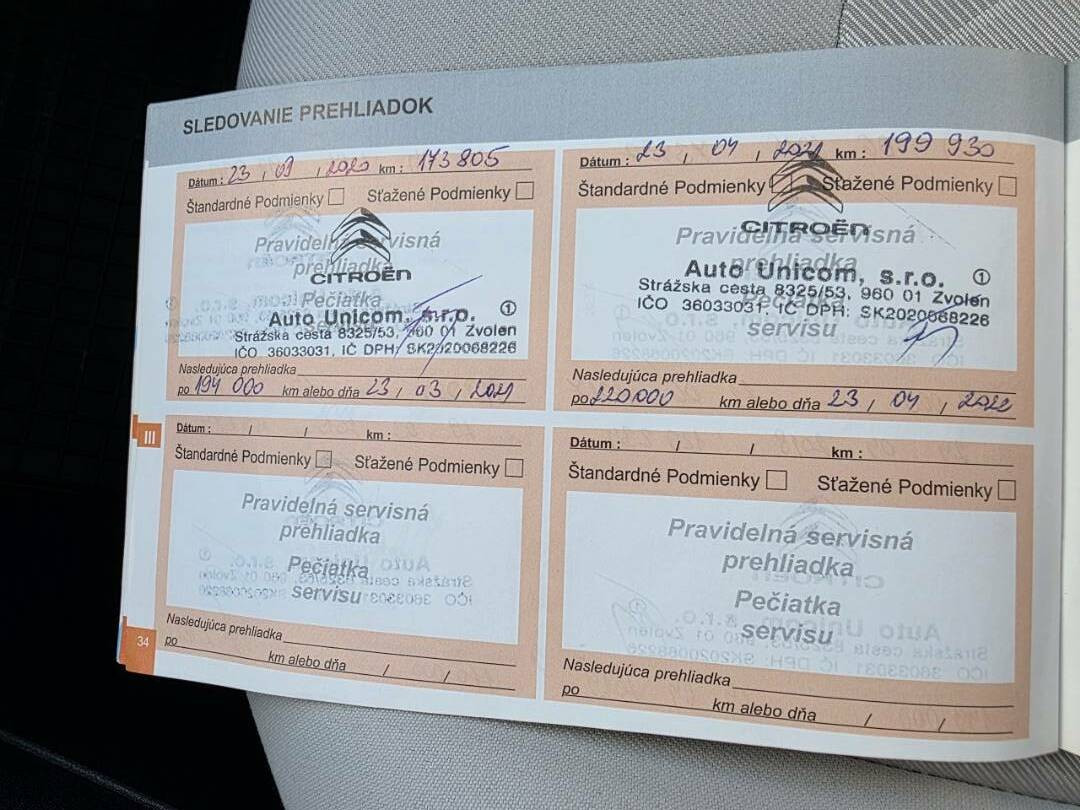 SLEDOVANIE PREHLIADOK
Dátum : 23 / 09 / 2020 km : 173 805
Štandardné Podmienky Sťažené Podmienky
Pravidelná servisná
prehliadka
CITROËN
Pečiatka
servisu
Auto Unicom, s.r.o. 1
Strážska cesta 8325/53, 960 01 Zvolen
IČO 36033031, IČ DPH: SK2020068226
Nasledujúca prehliadka
po 194 000 km alebo dňa 23 / 03 / 2021
Dátum : 23 / 04 / 2021 km : 199 930
Štandardné Podmienky Sťažené Podmienky
CITROËN
Pravidelná servisná
prehliadka
Auto Unicom, s.r.o. 1
Strážska cesta 8325/53, 960 01 Zvolen
Pečiatka
IČO 36033031, IČ DPH: SK2020068226
servisu
Nasledujúca prehliadka
po 220000 km alebo dňa 23 / 04 / 2022
III
Dátum : / / km :
Štandardné Podmienky Sťažené Podmienky
Pravidelná servisná
prehliadka
Pečiatka
servisu
Nasledujúca prehliadka
po km alebo dňa / /
Dátum : / / km :
Štandardné Podmienky Sťažené Podmienky
Pravidelná servisná
prehliadka
Pečiatka
servisu
Nasledujúca prehliadka
po km alebo dňa / /
34